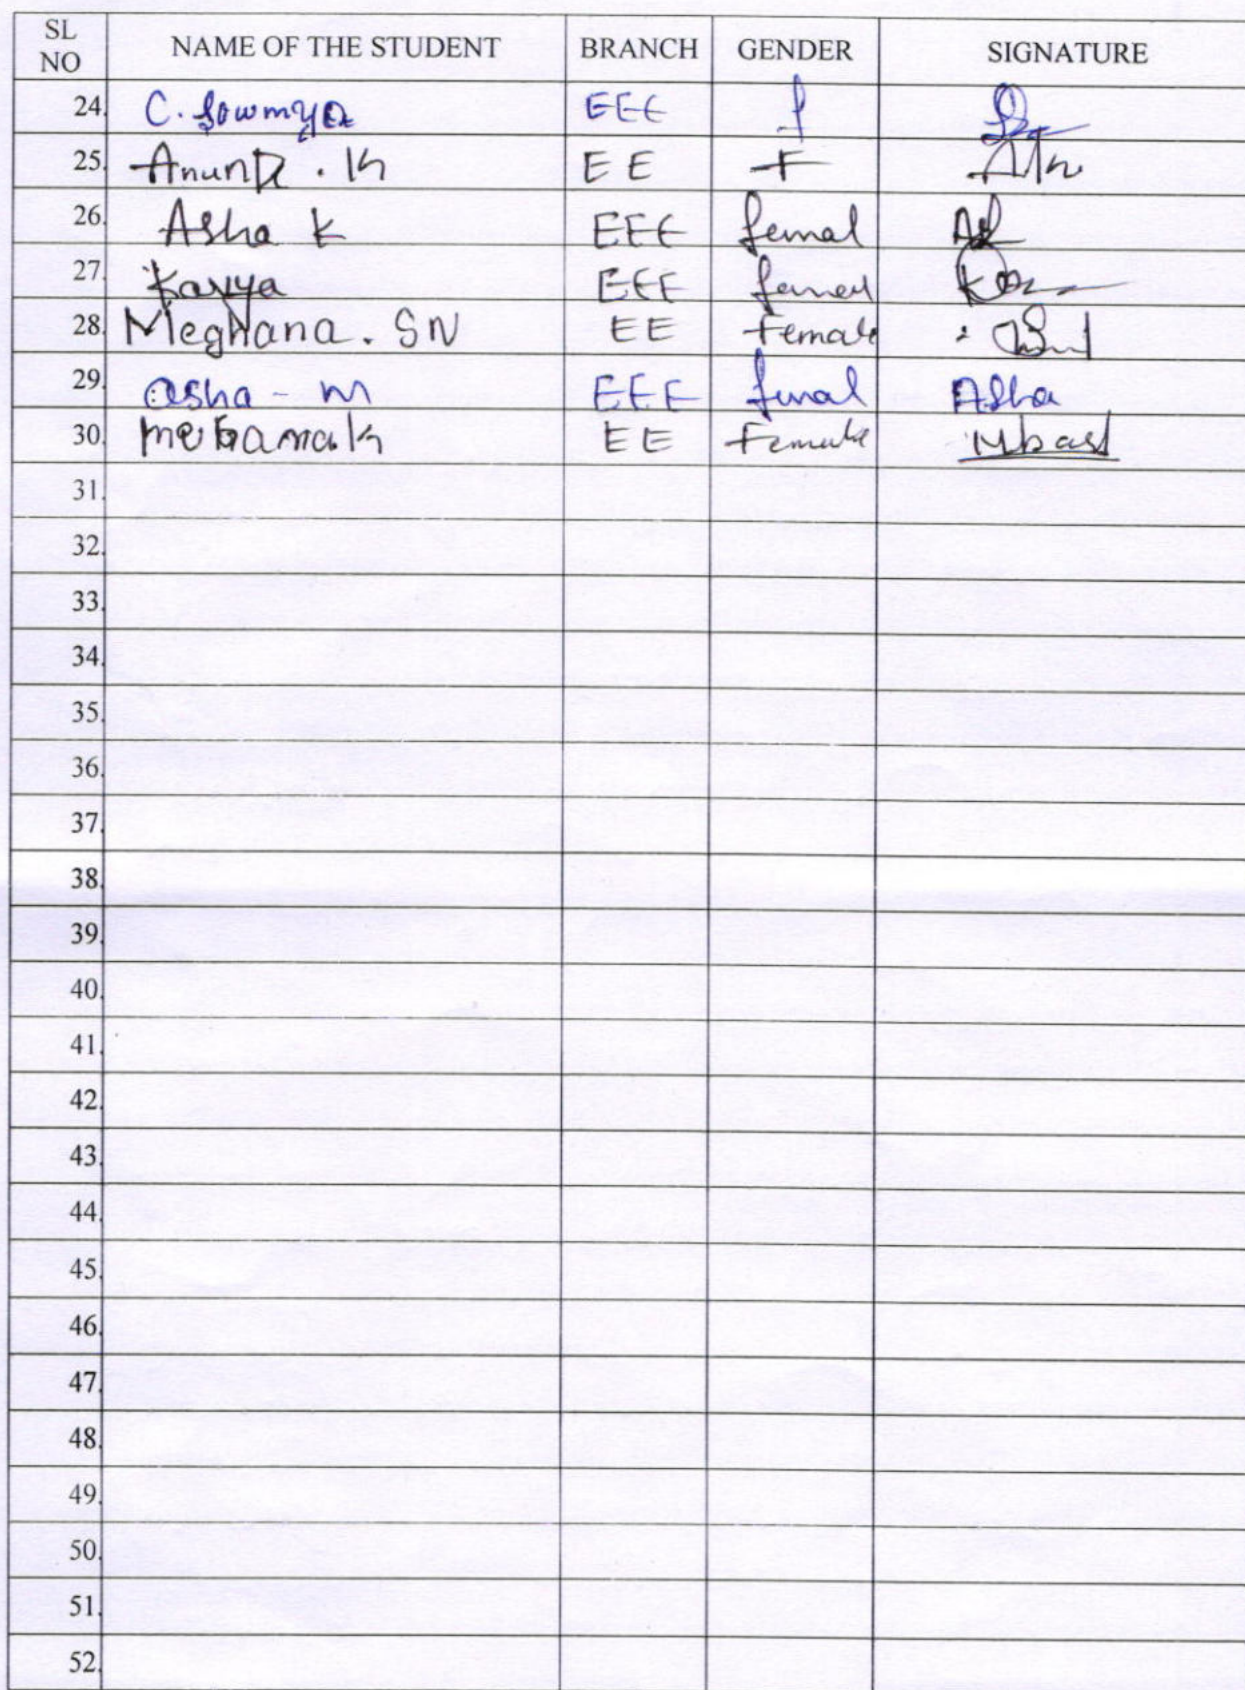 SL NO NAME OF THE STUDENT BRANCH GENDER SIGNATURE
24. C. Sowmya EEE f
25. K EE F
26. Asha K EEE femal
27. Kavya EEE
28. Meghana. SN EE Female
29. asha - m EEE Asha
30. EE Female
31.
32.
33.
34.
35.
36.
37.
38.
39.
40.
41.
42.
43.
44.
45.
46.
47.
48.
49.
50.
51.
52.